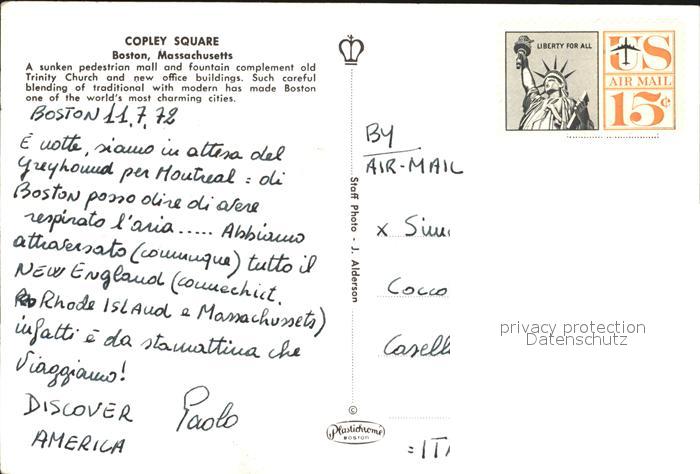 COPLEY SQUARE
Boston, Massachusetts
A sunken pedestrian mall and fountain complement old
Trinity Church and new office buildings. Such careful
blending of traditional with modern has made Boston
one of the world's most charming cities.
BOSTON 11.7.72
È notte, siamo in attesa del
Greyhound per Montreal : di
BOSTON posso dire di avere
respirato l'aria ..... Abbiamo
attraversato (comunque) tutto il
NEW ENGLAND (connechict.
Rhode ISLAND e Massachussets)
infatti è da stamattina che
Viaggiamo!
DISCOVER
AMERICA
Paolo
Staff Photo - J. Alderson
©
Plastichrome
BOSTON
LIBERTY FOR ALL
US
AIR MAIL
15¢
BY
AIR-MAIL
x
Cocco
Casell
=ITA
privacy protection
Datenschutz